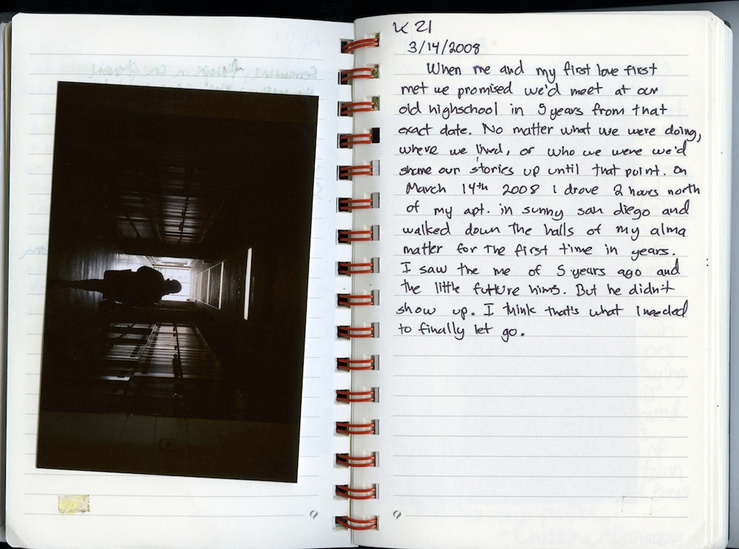 K 21
3/14/2008
When me and my first love first
met we promised we'd meet at our
old highschool in 5 years from that
exact date. No matter what we were doing,
where we lived, or who we were we'd
share our stories up until that point. On
March 14th 2008 I drove 2 hours north
of my apt. in sunny san diego and
walked down the halls of my alma
matter for the first time in years.
I saw the me of 5 years ago and
the little future hims. But he didn't
show up. I think that's what I needed
to finally let go.